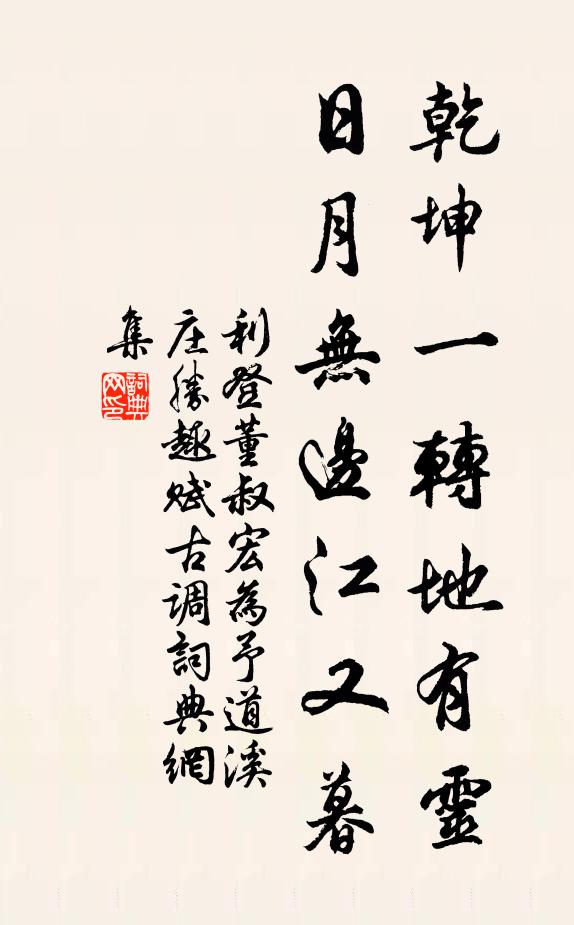 乾坤一轉地有靈
日月無邊江又暮
利登董叔宏為予道溪
庄勝趣赋古调詞典網
集
詞典
网印